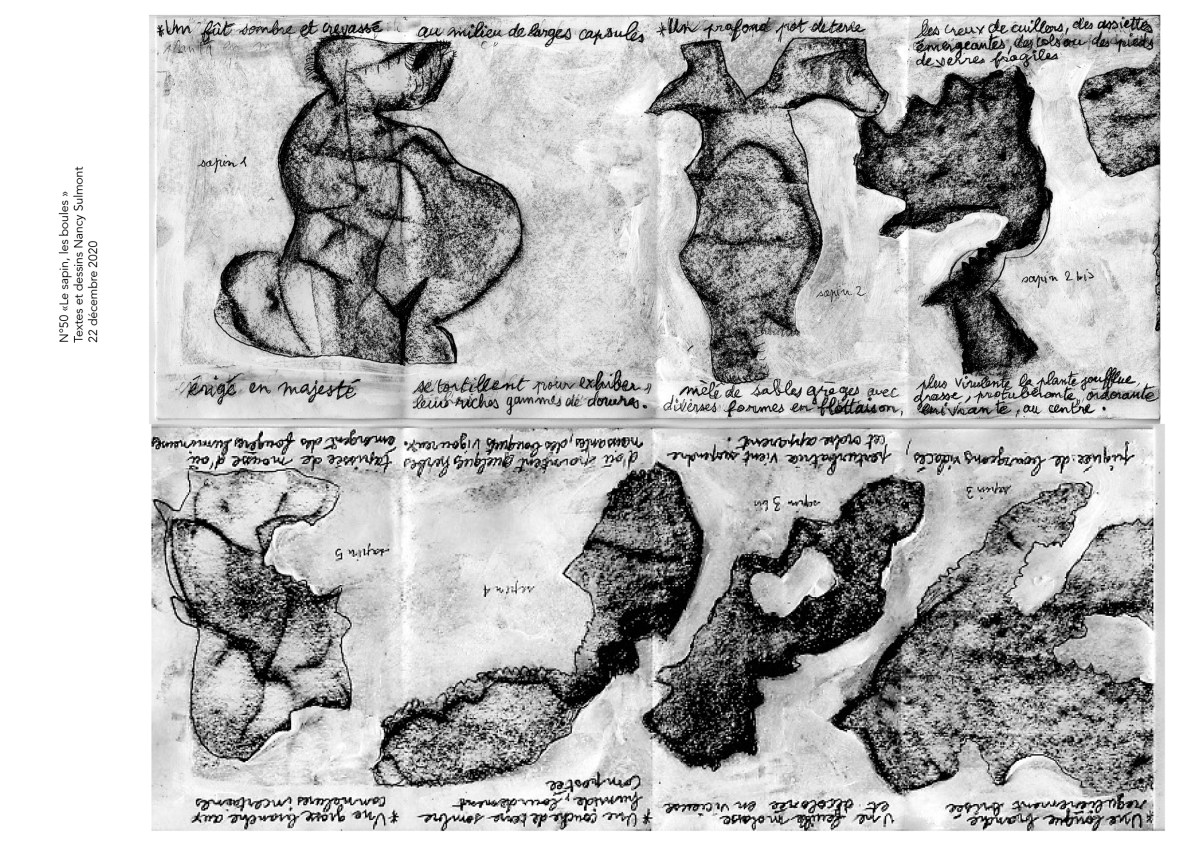 N°50 «Le sapin, les boules »
Textes et dessins Nancy Sulmont
22 décembre 2020
*Un fût sombre et crevassé
au milieu de larges capsules
sapin 1
érigé en majesté
se tortillent pour exhiber
leurs riches gammes de
*Un profond pot de terre
les creux de cuillers, des assiettes
émergeantes, des cols ou des pieds
de verres fragiles
sapin 2
sapin 2 bis
mêlé de sables grèges avec
diverses formes en flottaison,
plus virulente la plante souffle,
grasse, protubérante, odorante
enivrante, au centre.
*Une longue branche
régulièrement brisée
sapin 3
piquée de bourgeons violacés,
Une feuille molasse
et décolorée en vicieuse
sapin 3 bis
perturbatrice vient surprendre
cet ordre apparent.
*Une couche de terre sombre
humide, lourdement
compostée
sapin 4
d'où pointent quelques herbes
naissantes, des bouquets vigoureux.
*Une grosse branche aux
cannelures incertaines
sapin 5
tapissée de mousse d'où
émergent des fougères lumineuses